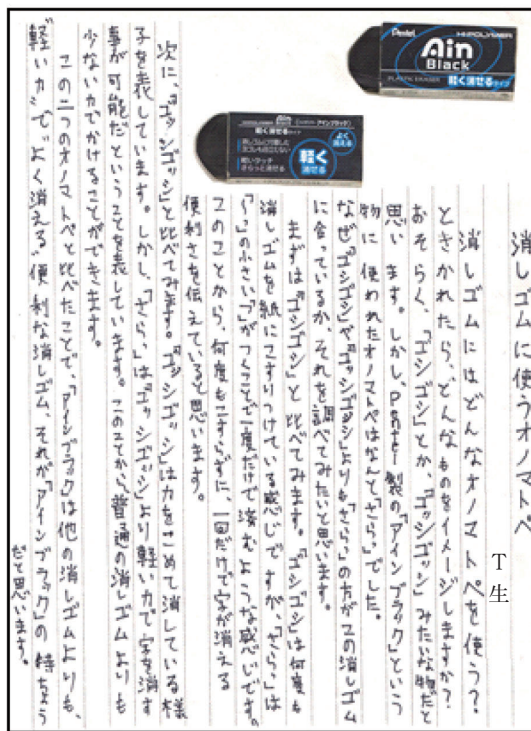 消しゴムに使うオノマトペ
T生
消しゴムにはどんなオノマトペを使う?
ときかれたら、どんなものをイメージしますか?
おそらく、「ゴシゴシ」とか、「ゴッシゴッシ」みたいな物だと
思います。しかし、Pentel製の「アインブラック」という
物に使われたオノマトペはなんと「さらっ」でした。
なぜ「ゴシゴシ」や「ゴッシゴッシ」よりも「さらっ」の方がこの消しゴム
に合っているか、それを調べてみたいと思います。
まずは「ゴシゴシ」と比べてみます。「ゴシゴシ」は何度も
消しゴムを紙にこすりつけている感じですが、「さらっ」は
「ら」の小さい「っ」がつくことで一度だけで済むような感じです。
このことから、何度もこすらずに、一回だけで字が消える
便利さを伝えていると思います。
次に、「ゴッシゴッシ」と比べてみます。「ゴッシゴッシ」は力をこめて消している様
子を表しています。しかし、「さらっ」は「ゴッシゴッシ」より軽い力で字を消す
事が可能だということを表しています。このことから、普通の消しゴムよりも
少ない力でかけることができます。
この二つのオノマトペと比べたことで、「アインブラック」は他の消しゴムよりも、
“軽い力”で“よく消える”便利な消しゴム、それが「アインブラック」の特ちょう
だと思います。
Pentel
HI-POLYMER
Ain
Black
PLASTIC ERASER
軽く消せるタイプ
Ain
Black
アインブラック
軽く消せるタイプ
よく
消える
軽く
消せる
軽いタッチで
さらっと消せる